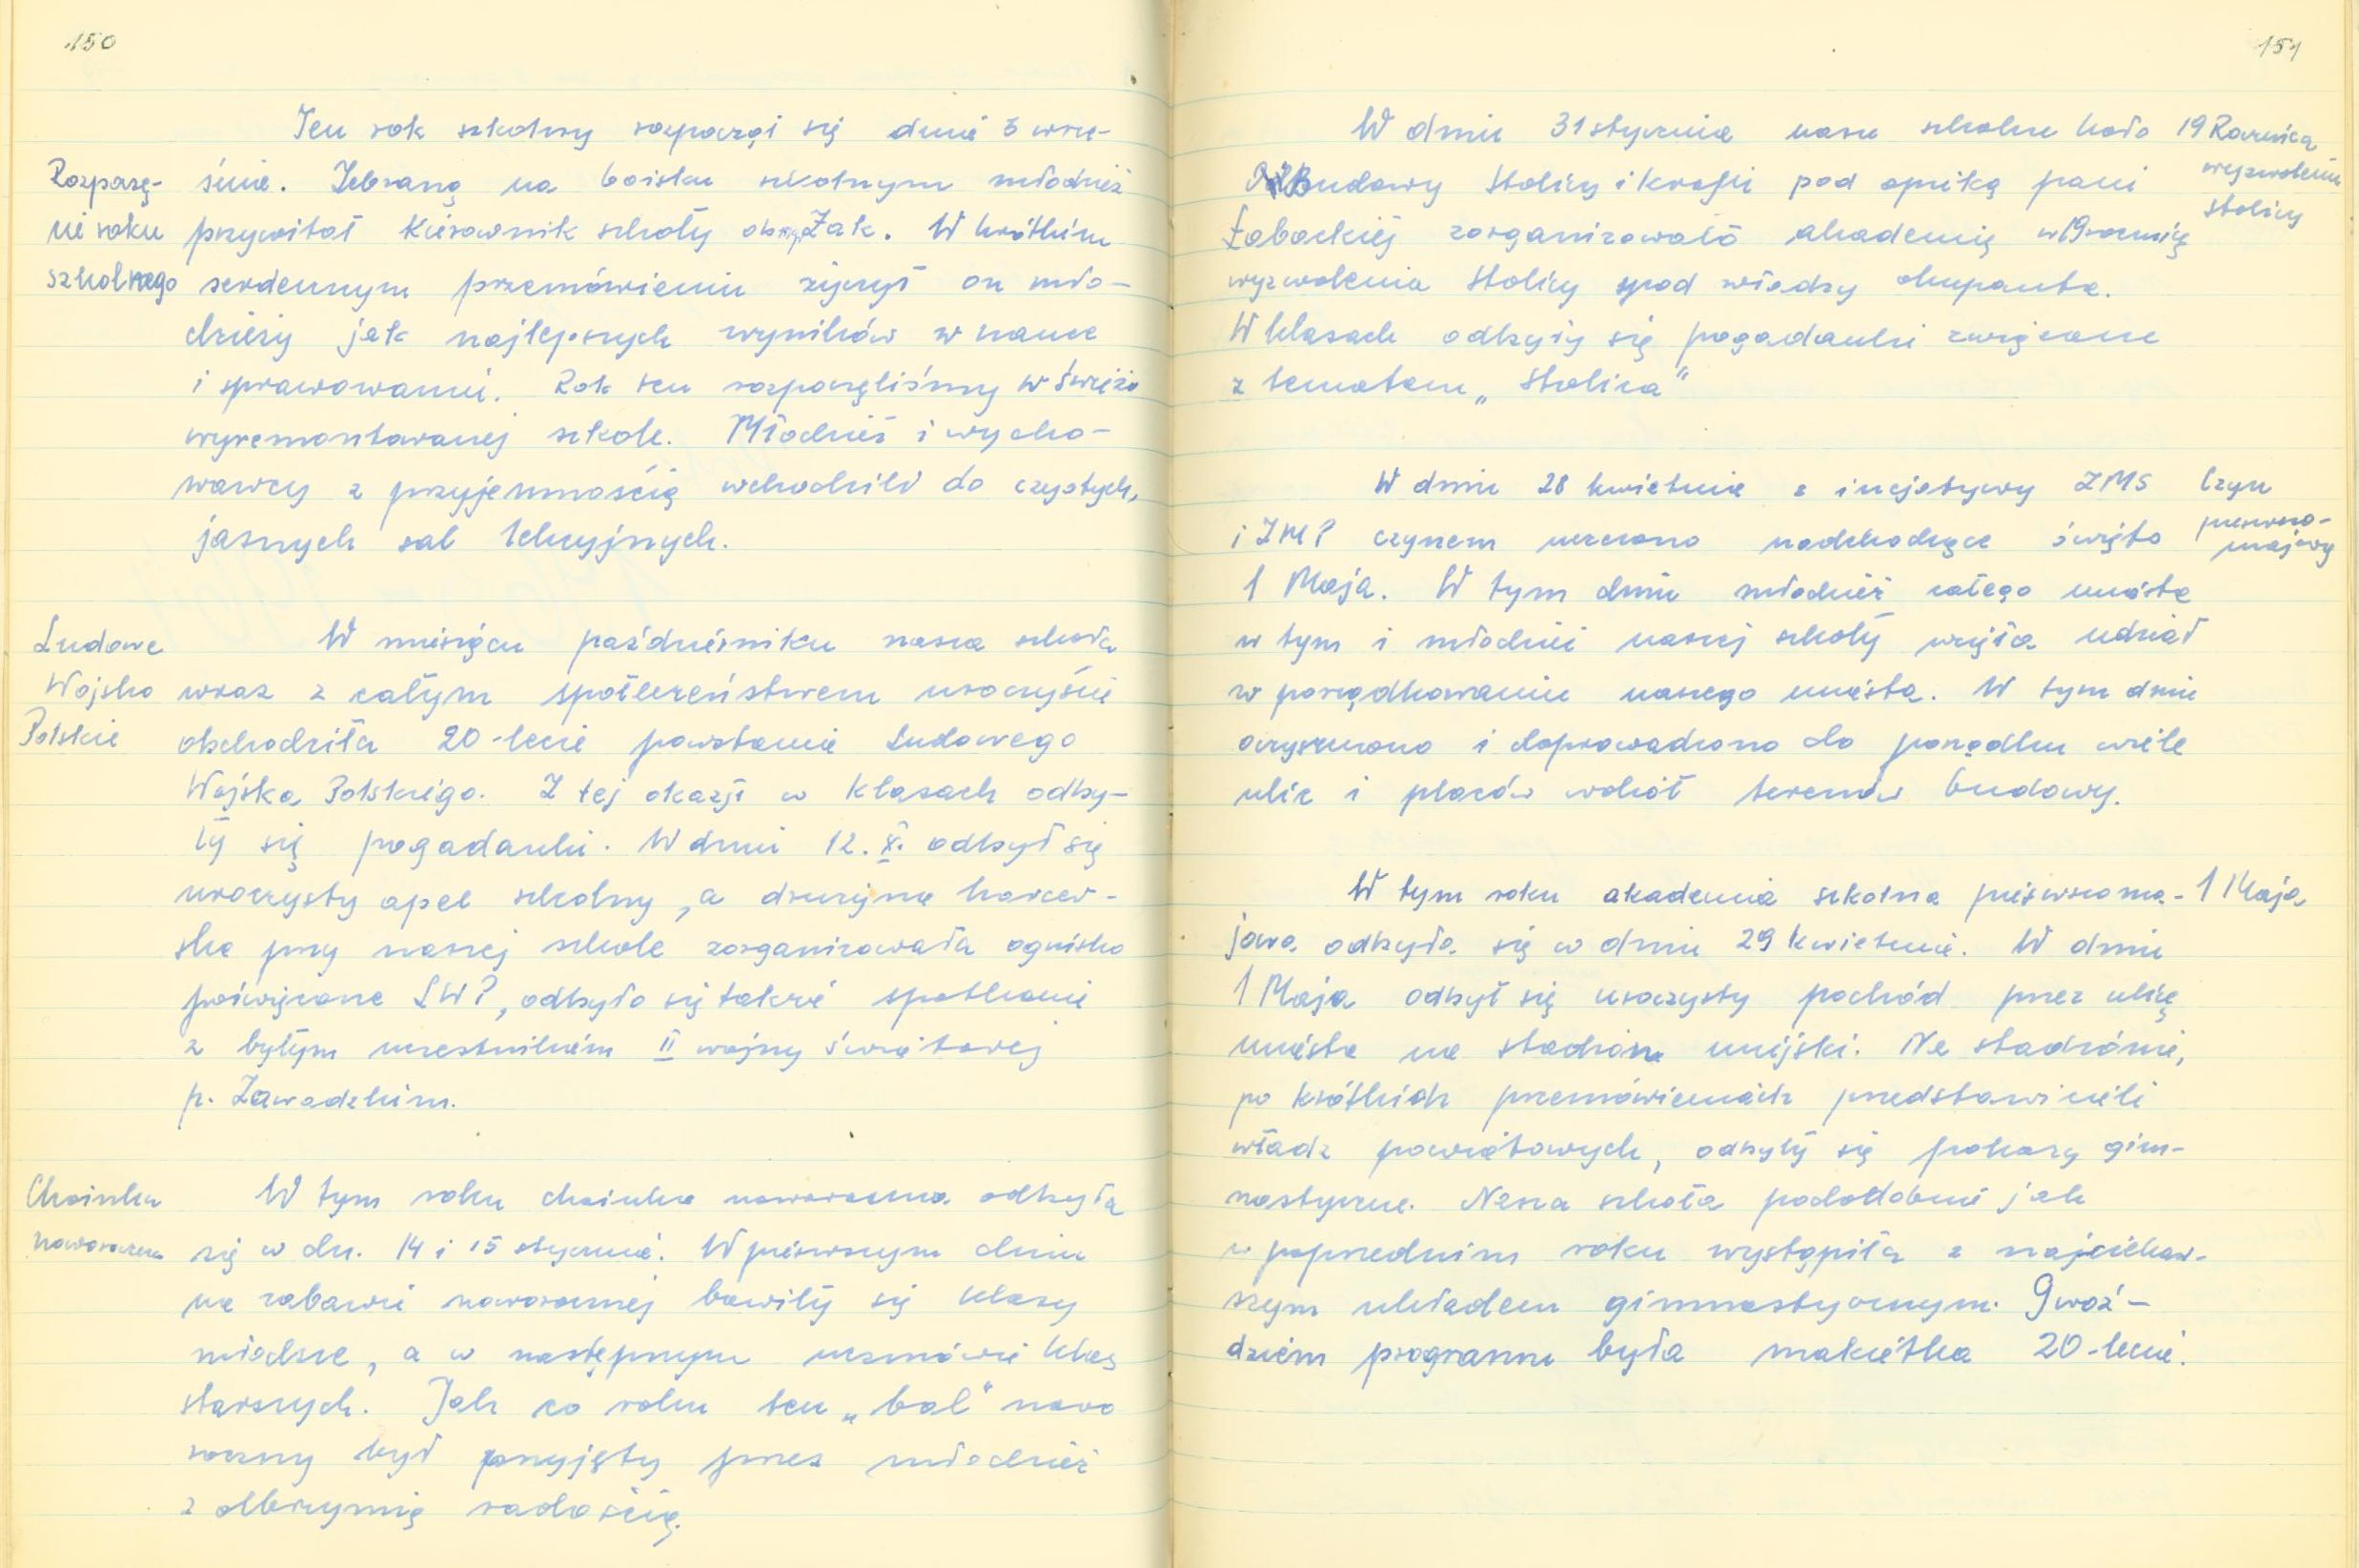 150
Ten rok szkolny rozpoczął się dnia 3 wrze-
śnia. Zebraną na boisku szkolnym młodzież
przywitał Kierownik szkoły ob. Żak. W krótkim
serdecznym przemówieniu życzył on mło-
dzieży jak najlepszych wyników w nauce
i sprawowaniu. Rok ten rozpoczęliśmy w świeżo
wyremontowanej szkole. Młodzież i wycho-
wawcy z przyjemnością wchodzili do czystych,
jasnych sal lekcyjnych.
Rozpoczę-
cie roku
szkolnego
W miesiącu październiku nasza szkoła
wraz z całym społeczeństwem uroczyście
obchodziła 20-lecie powstania Ludowego
Wojska Polskiego. Z tej okazji w klasach odby-
ły się pogadanki. W dniu 12.X. odbył się
uroczysty apel szkolny, a drużyna harcer-
ska przy naszej szkole zorganizowała ognisko
poświęcone LWP, odbyło się także spotkanie
z byłym uczestnikiem II wojny światowej
p. Zawadzkim.
Ludowe
Wojsko
Polskie
W tym roku choinka noworoczna odbyła
się w dn. 14 i 15 stycznia. W pierwszym dniu
na zabawie noworocznej bawiły się klasy
młodsze, a w następnym uczniowie klas
starszych. Jak co roku ten „bal" nowo
roczny był przyjęty przez młodzież
z olbrzymią radością.
Choinka
noworoczna
151
W dniu 31 stycznia nasze szkolne koło
Odbudowy Stolicy i Krafii pod opieką pani
Łobockiej zorganizowało akademię w 19 rocznicę
wyzwolenia Stolicy spod władzy okupanta.
W klasach odbyły się pogadanki związane
z tematem „Stolica"
19 Rocznica
wyzwolenia
Stolicy
W dniu 28 kwietnia z incjatywy ZMS
i ZMP czynem uczczono nadchodzące święto
1 Maja. W tym dniu młodzież całego miasta
w tym i młodzież naszej szkoły wzięła udział
w porządkowaniu naszego miasta. W tym dniu
oczyszczono i doprowadzono do porządku wiele
ulic i placów wokół terenów budowy.
Czyn
pierwszo-
majowy
W tym roku akademia szkolna pierwszoma-
jowa odbyła się w dniu 29 kwietnia. W dniu
1 Maja odbył się uroczysty pochód przez ulicę
miasta na stadion miejski. Na stadionie,
po krótkich przemówieniach przedstawicieli
władz powiatowych, odbyły się pokazy gim-
nastyczne. Nasza szkoła podobnie jak
w poprzednim roku wystąpiła z najciekaw-
szym układem gimnastycznym. Gwoź-
dziem programu była makietka 20-lecia.
1 Maja